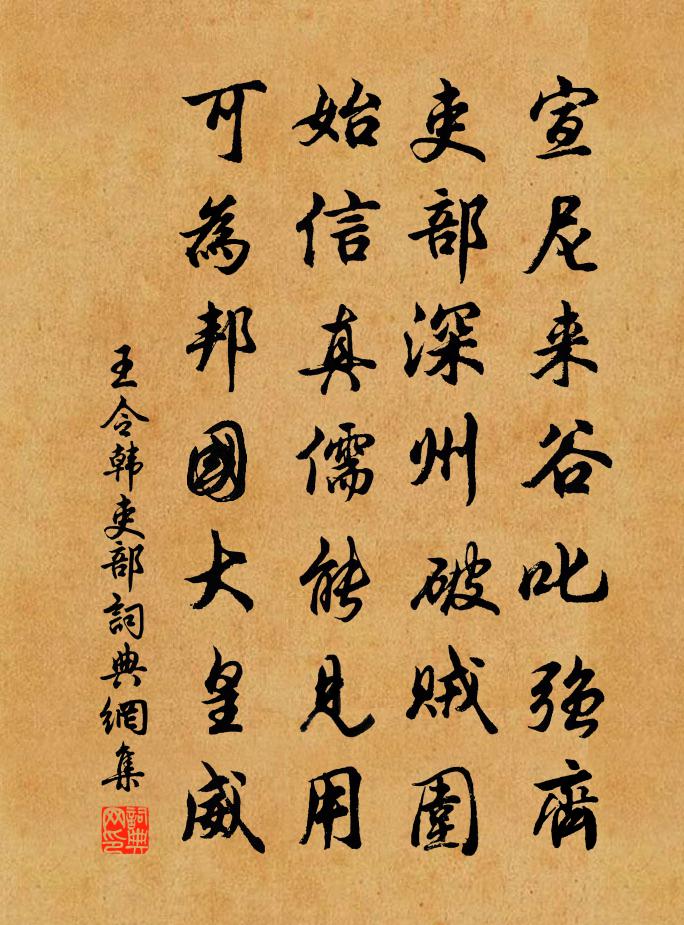 宣尼来谷叱强齊
吏部深州破賊圍
始信真儒能見用
可為邦國大皇威
王令韩吏部詞典網集
詞典网印